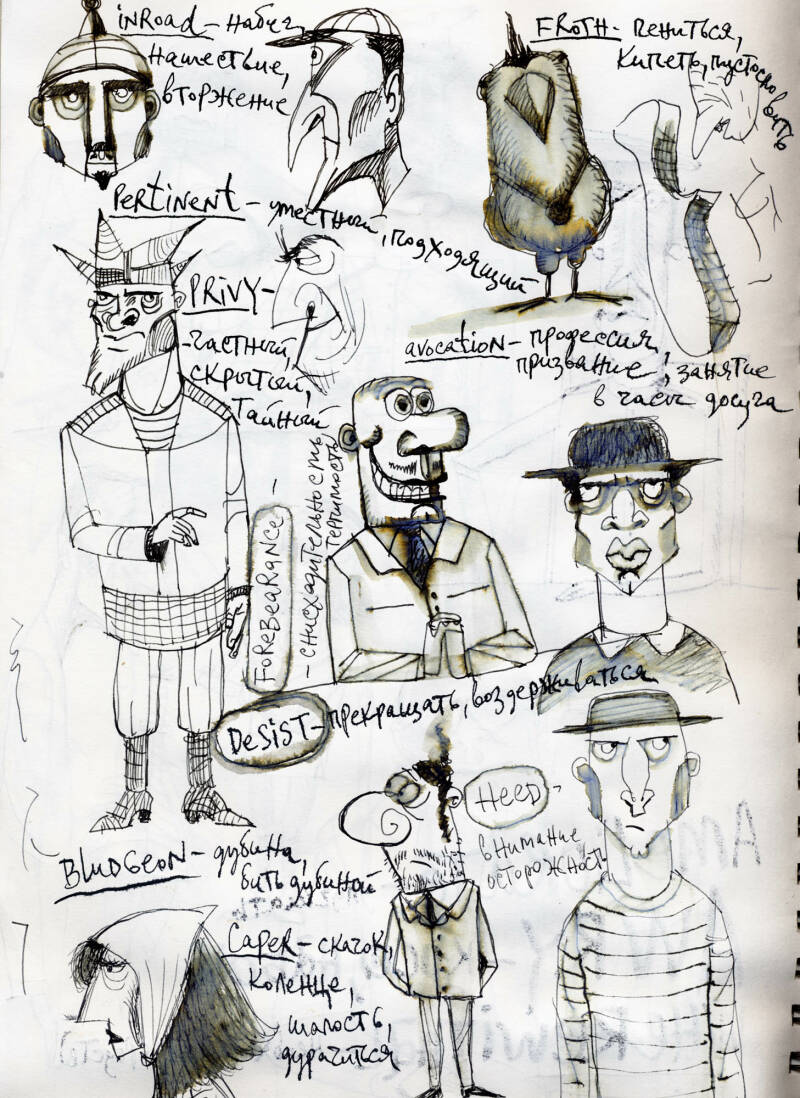 INROAD - набег,
нашествие,
вторжение
FROTH - пениться,
кипеть, пустословить
PERTINENT - уместный, подходящий
PRIVY -
- частный,
скрытый,
тайный
AVOCATION - профессия,
призвание, занятие
в часы досуга
FOREBEARANCE -
- снисходительность
терпимость
DESIST - прекращать, воздерживаться
HEED -
внимание
осторожность
BLUDGEON - дубина,
бить дубиной
CAPER - скачок,
коленце,
шалость,
дурачиться